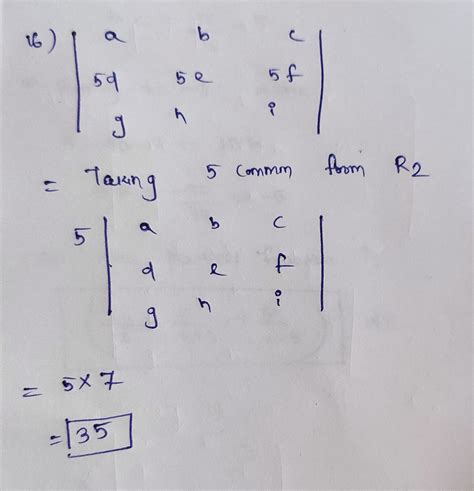 16) | a b c |
| 5d 5e 5f |
| g h i |
= Taking 5 common from R2
5 | a b c |
| d e f |
| g h i |
= 5 × 7
= 35